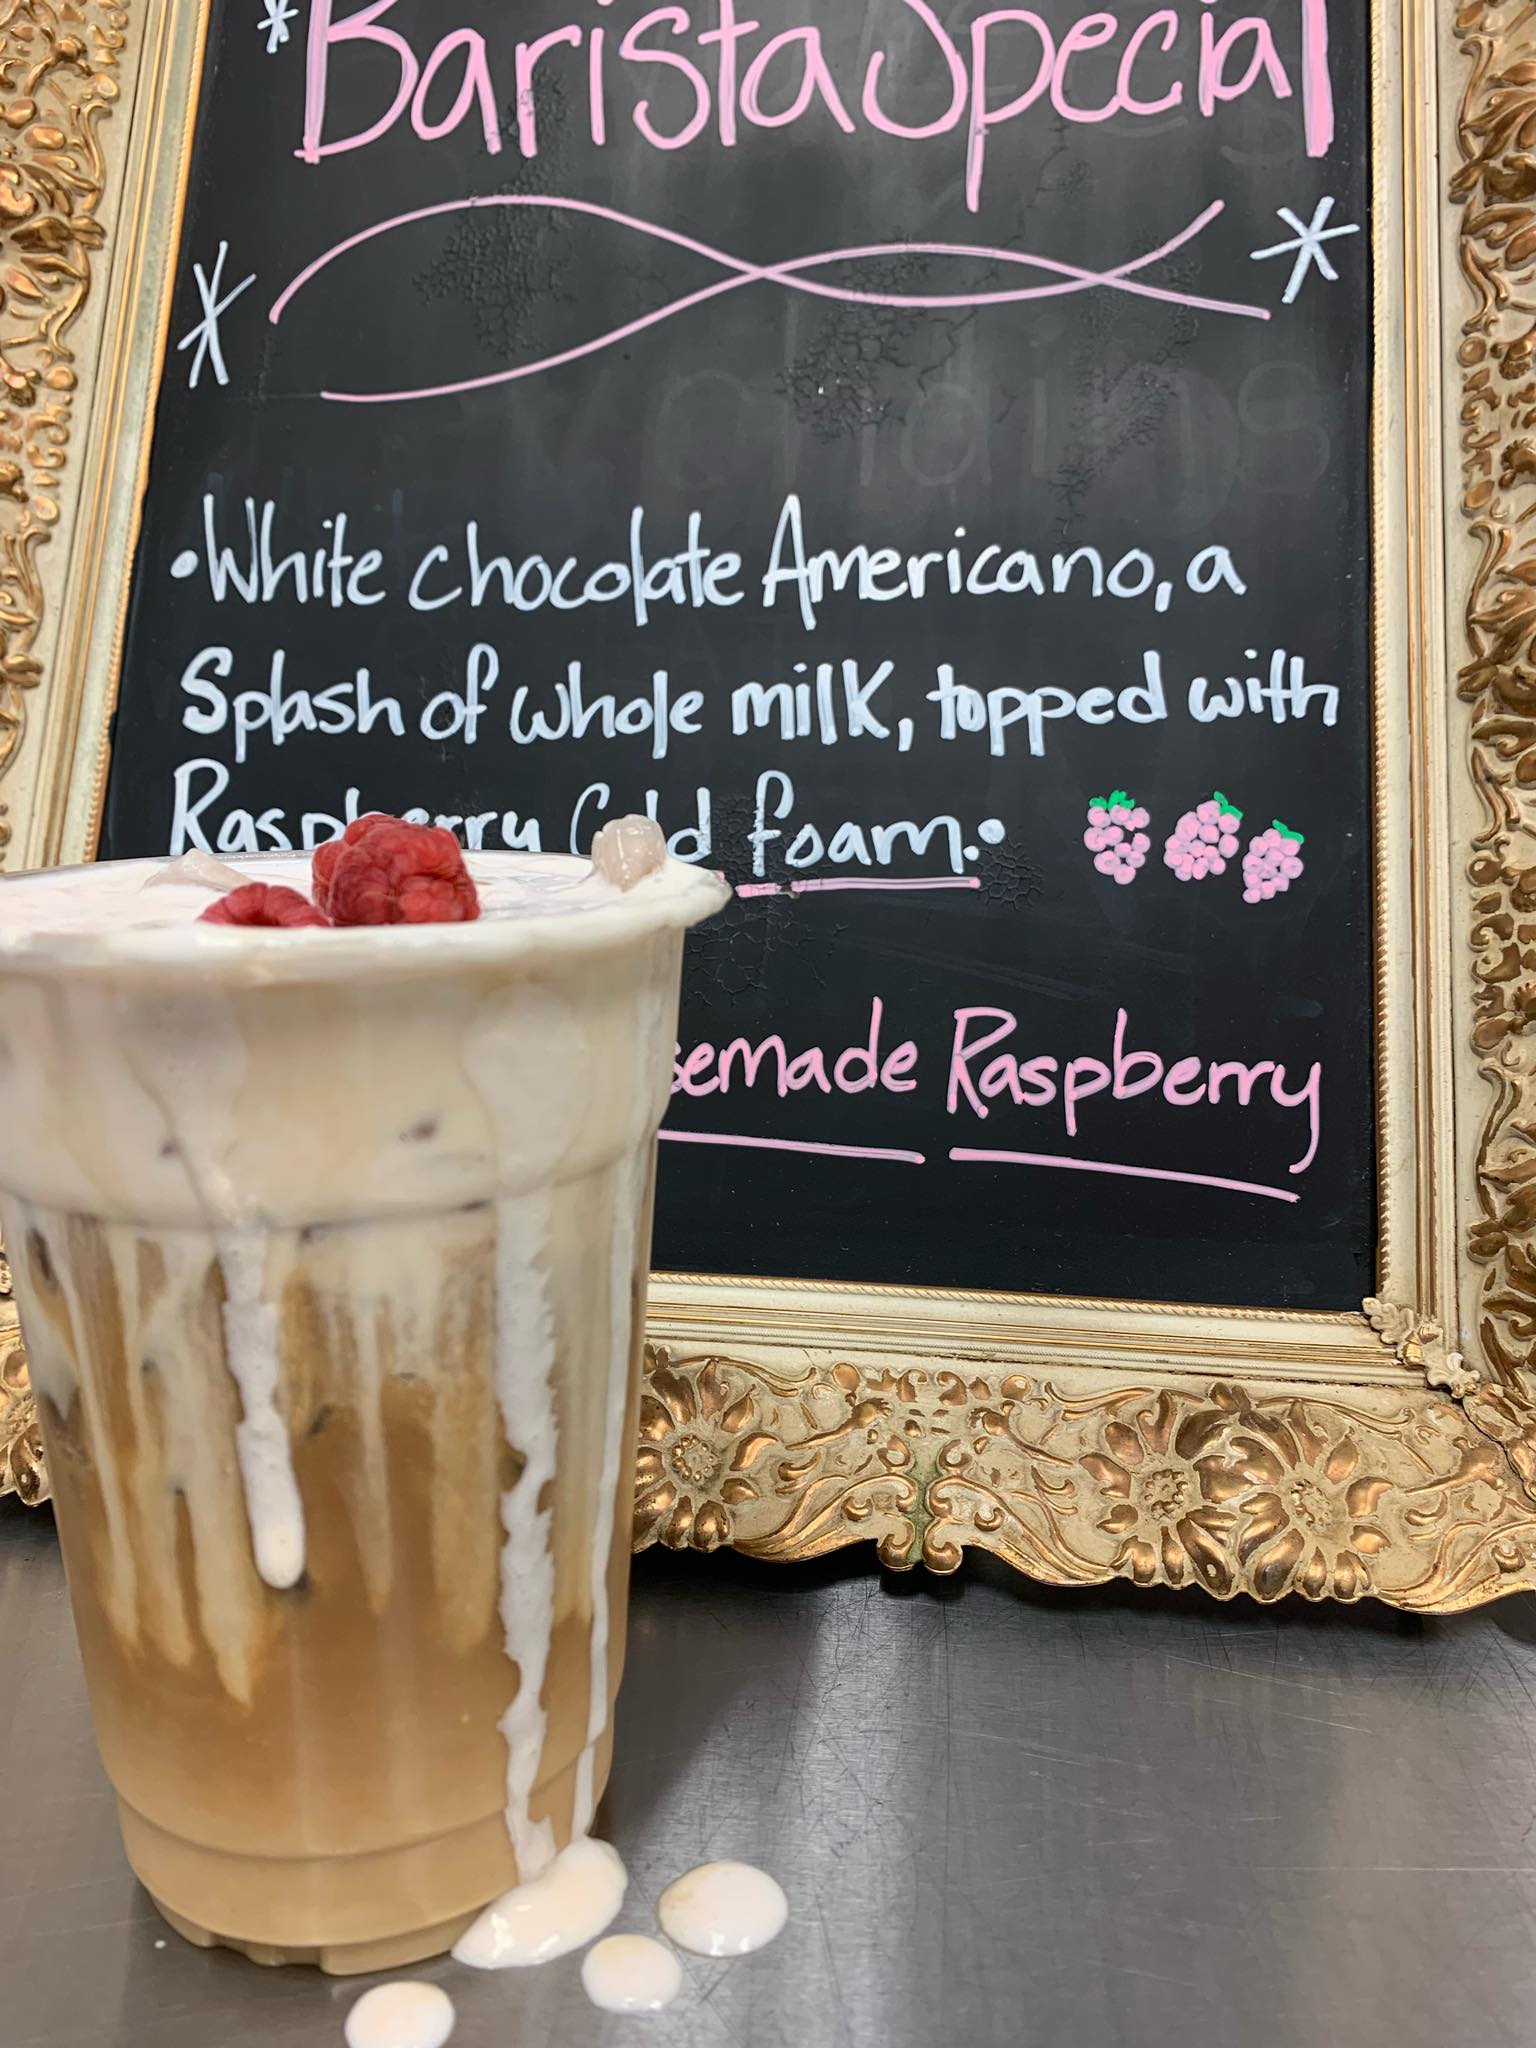 Barista Special
• White chocolate Americano, a
Splash of whole milk, topped with
Raspberry Cold foam. •
Raspberry